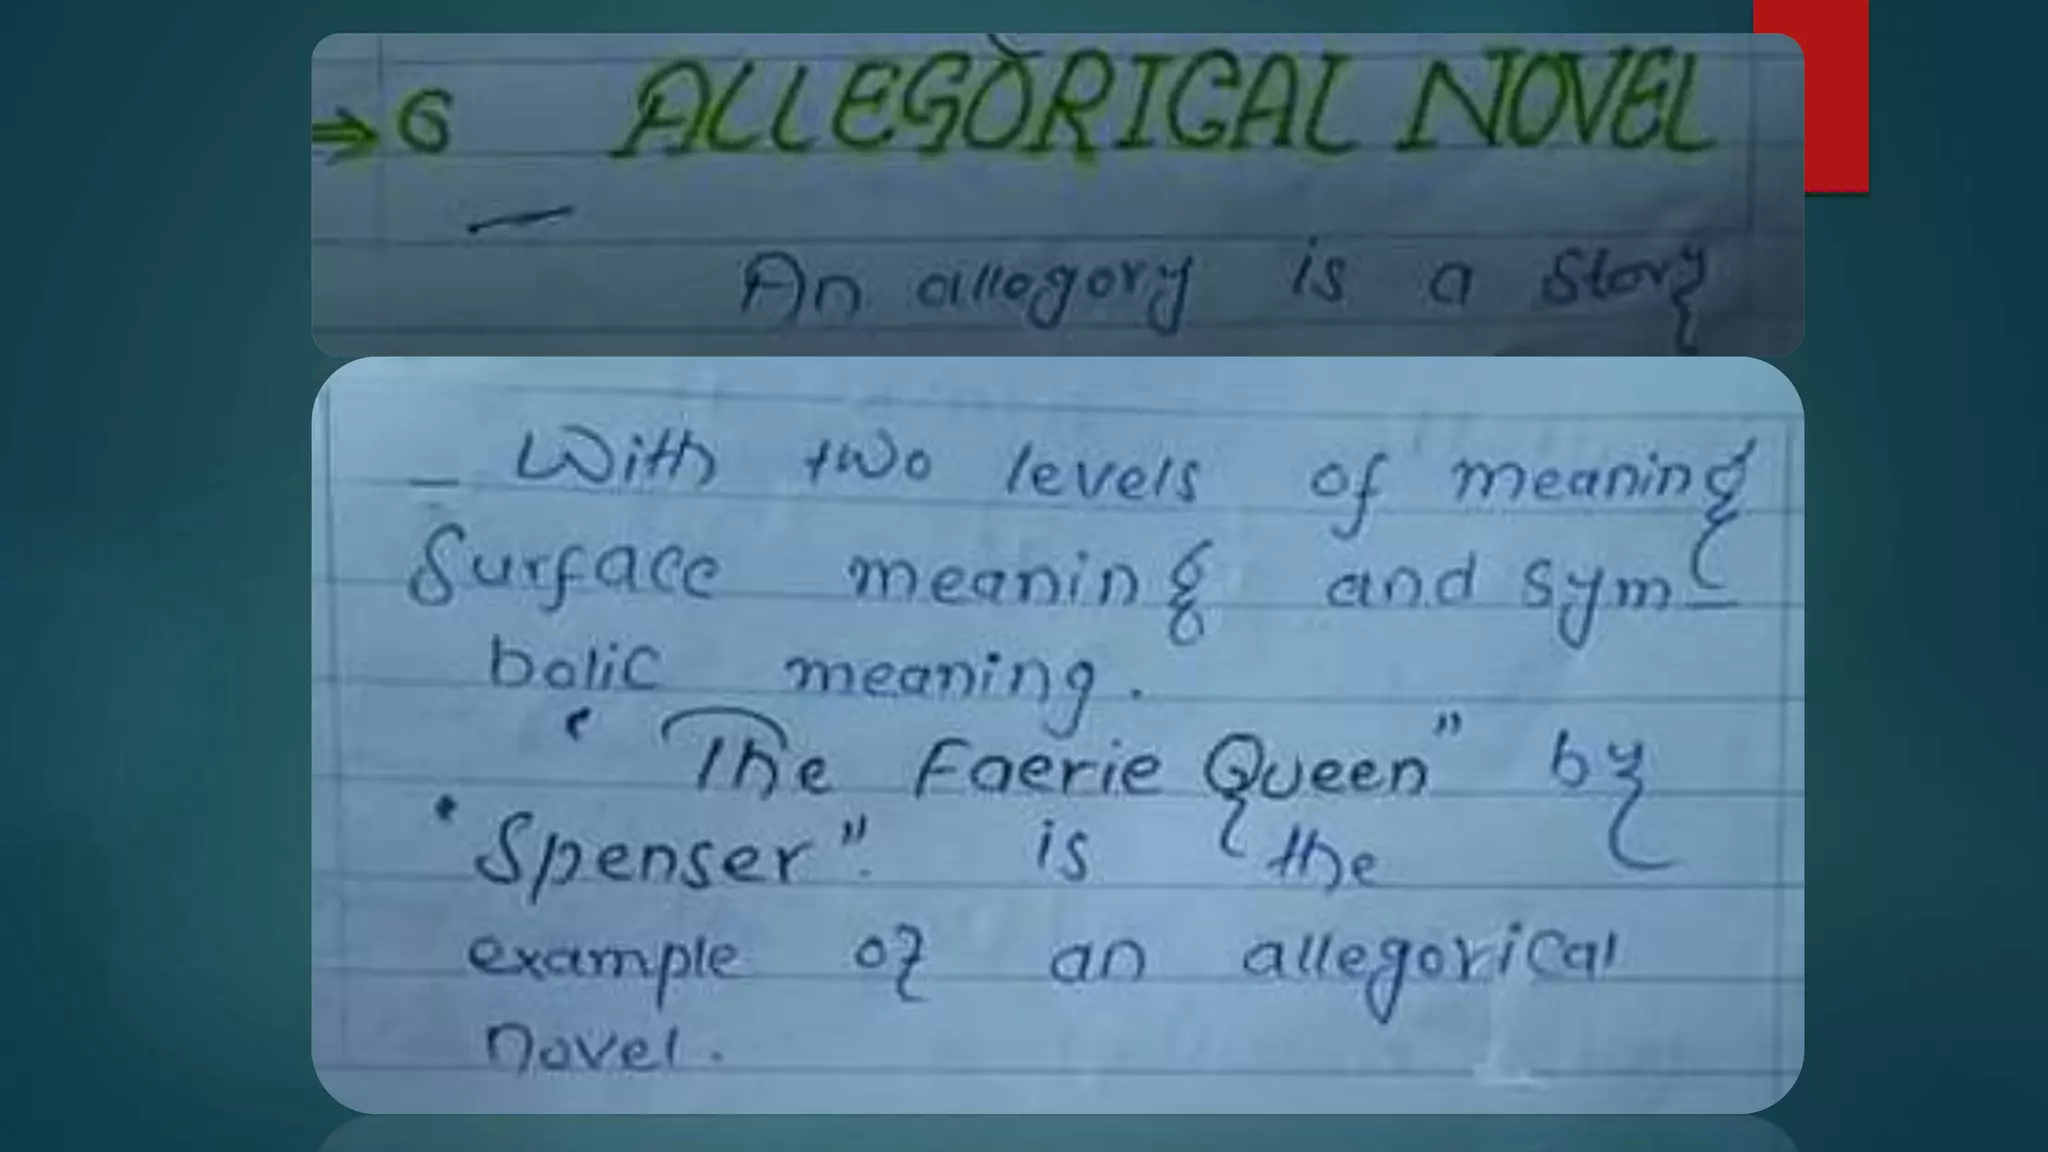 ⇒ 6 ALLEGORICAL NOVEL
An allegory is a story
With two levels of meaning
Surface meaning and sym-
bolic meaning.
" The Faerie Queen" by
"Spenser". is the
example of an allegorical
novel.